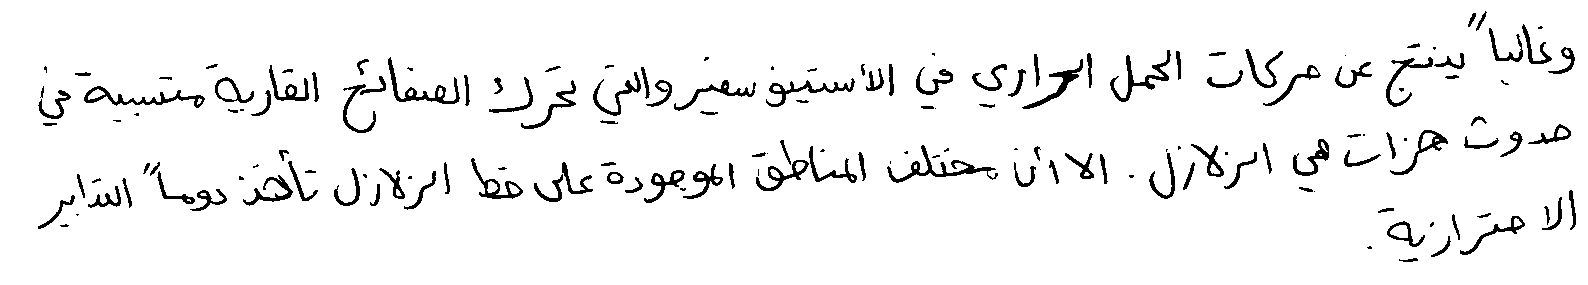 وغالباً ينتج عن حركات الحمل الحراري في الأستينوسفير والتي تحرك الصفائح القارية متسببة في
حدوث هزات هي الزلازل. الا أن مختلف المناطق الموجودة على خط الزلازل تأخذ دوماً التدابير
الاحترازية.